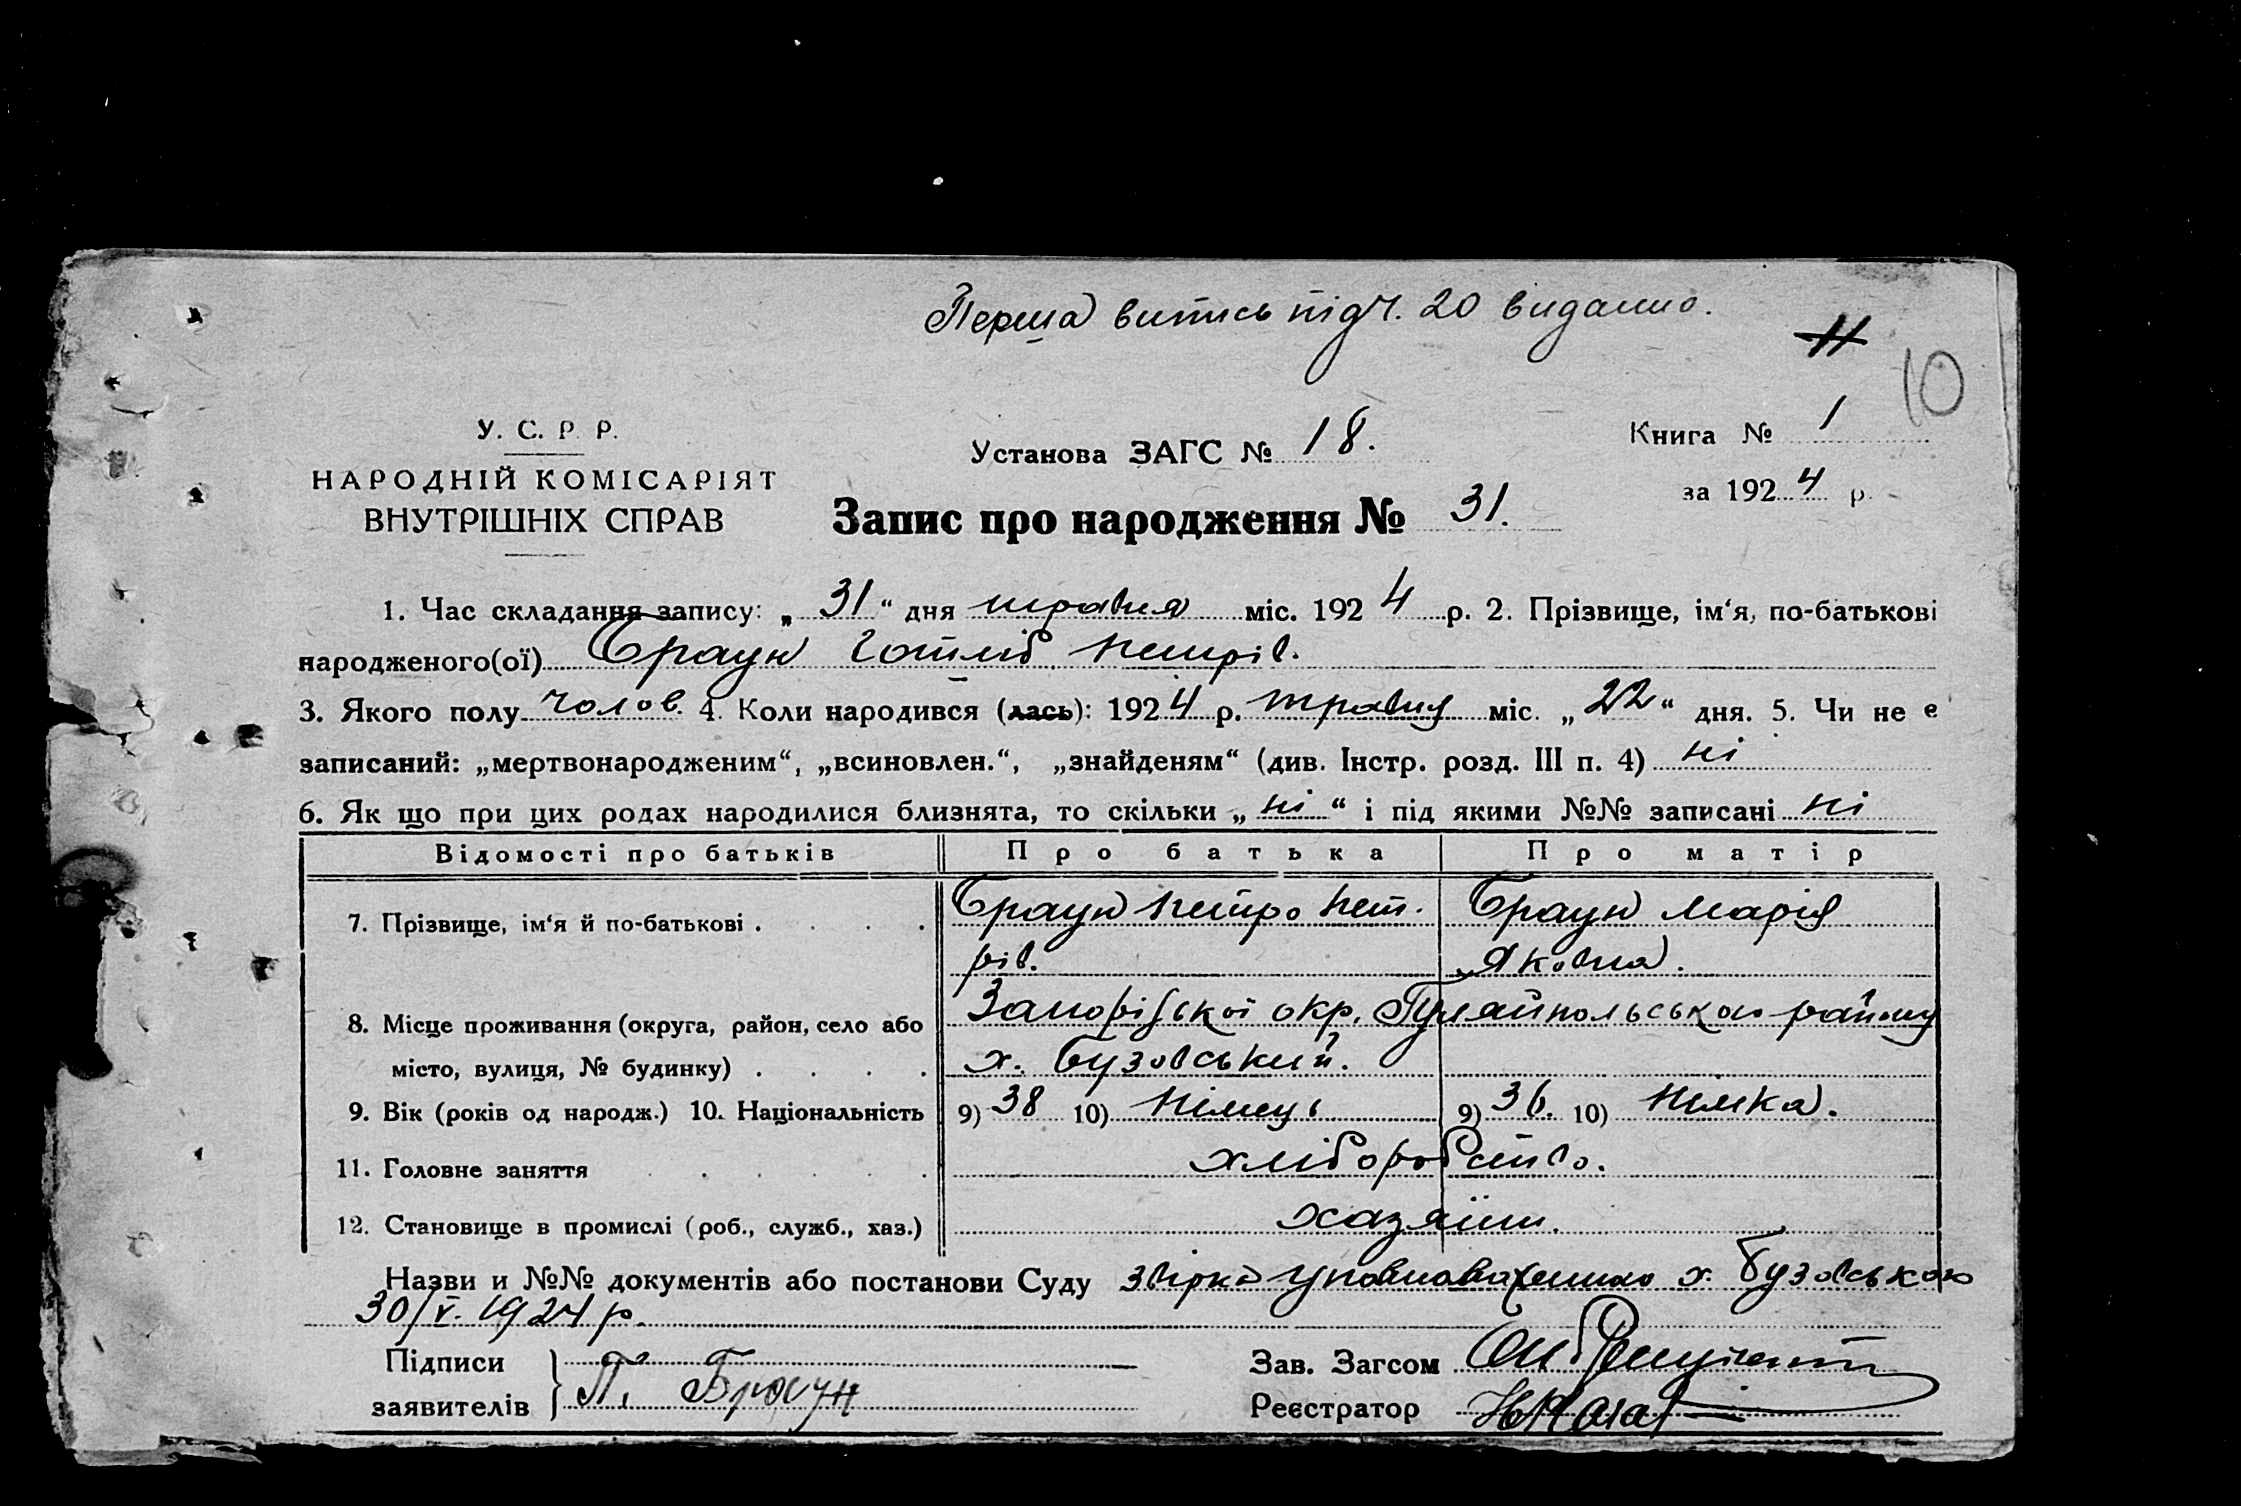 Перша випись під ч. 20 видано.
11
10
У. С. Р. Р.
НАРОДНІЙ КОМІСАРІЯТ
ВНУТРІШНІХ СПРАВ
Установа ЗАГС № 18.
Книга № 1
за 1924 р.
Запис про народження № 31.
1. Час складання запису: „31“ дня травня міс. 1924 р. 2. Прізвище, ім‘я, по-батькові
народженого(ої) Браун Готліб Петрів.
3. Якого полу чолов. 4. Коли народився (лась): 1924 р. травня міс. „22“ дня. 5. Чи не є
записаний: „мертвонародженим“, „всиновлен.“, „знайденям“ (див. Інстр. розд. III п. 4) ні
6. Як що при цих родах народилися близнята, то скільки „ні“ і під якими №№ записані ні
Відомості про батьків Про батька Про матір
7. Прізвище, ім‘я й по-батькові . . . . Браун Петро Пет- Браун Марія
рів. Яковна.
8. Місце проживання (округа, район, село або Запорізької окр. Гуляйпольського району
місто, вулиця, № будинку) . . . . х. Бузовський.
9. Вік (років од народж.) 10. Національність 9) 38 10) Німець 9) 36. 10) Німка.
11. Головне заняття . . . . хліборобство.
12. Становище в промислі (роб., служб., хаз.) хазяїни.
Назви и №№ документів або постанови Суду уповноваженого х. Бузовського
30/V. 1924 р.
Підписи
заявителів } П. Браун
Зав. Загсом
Реєстратор